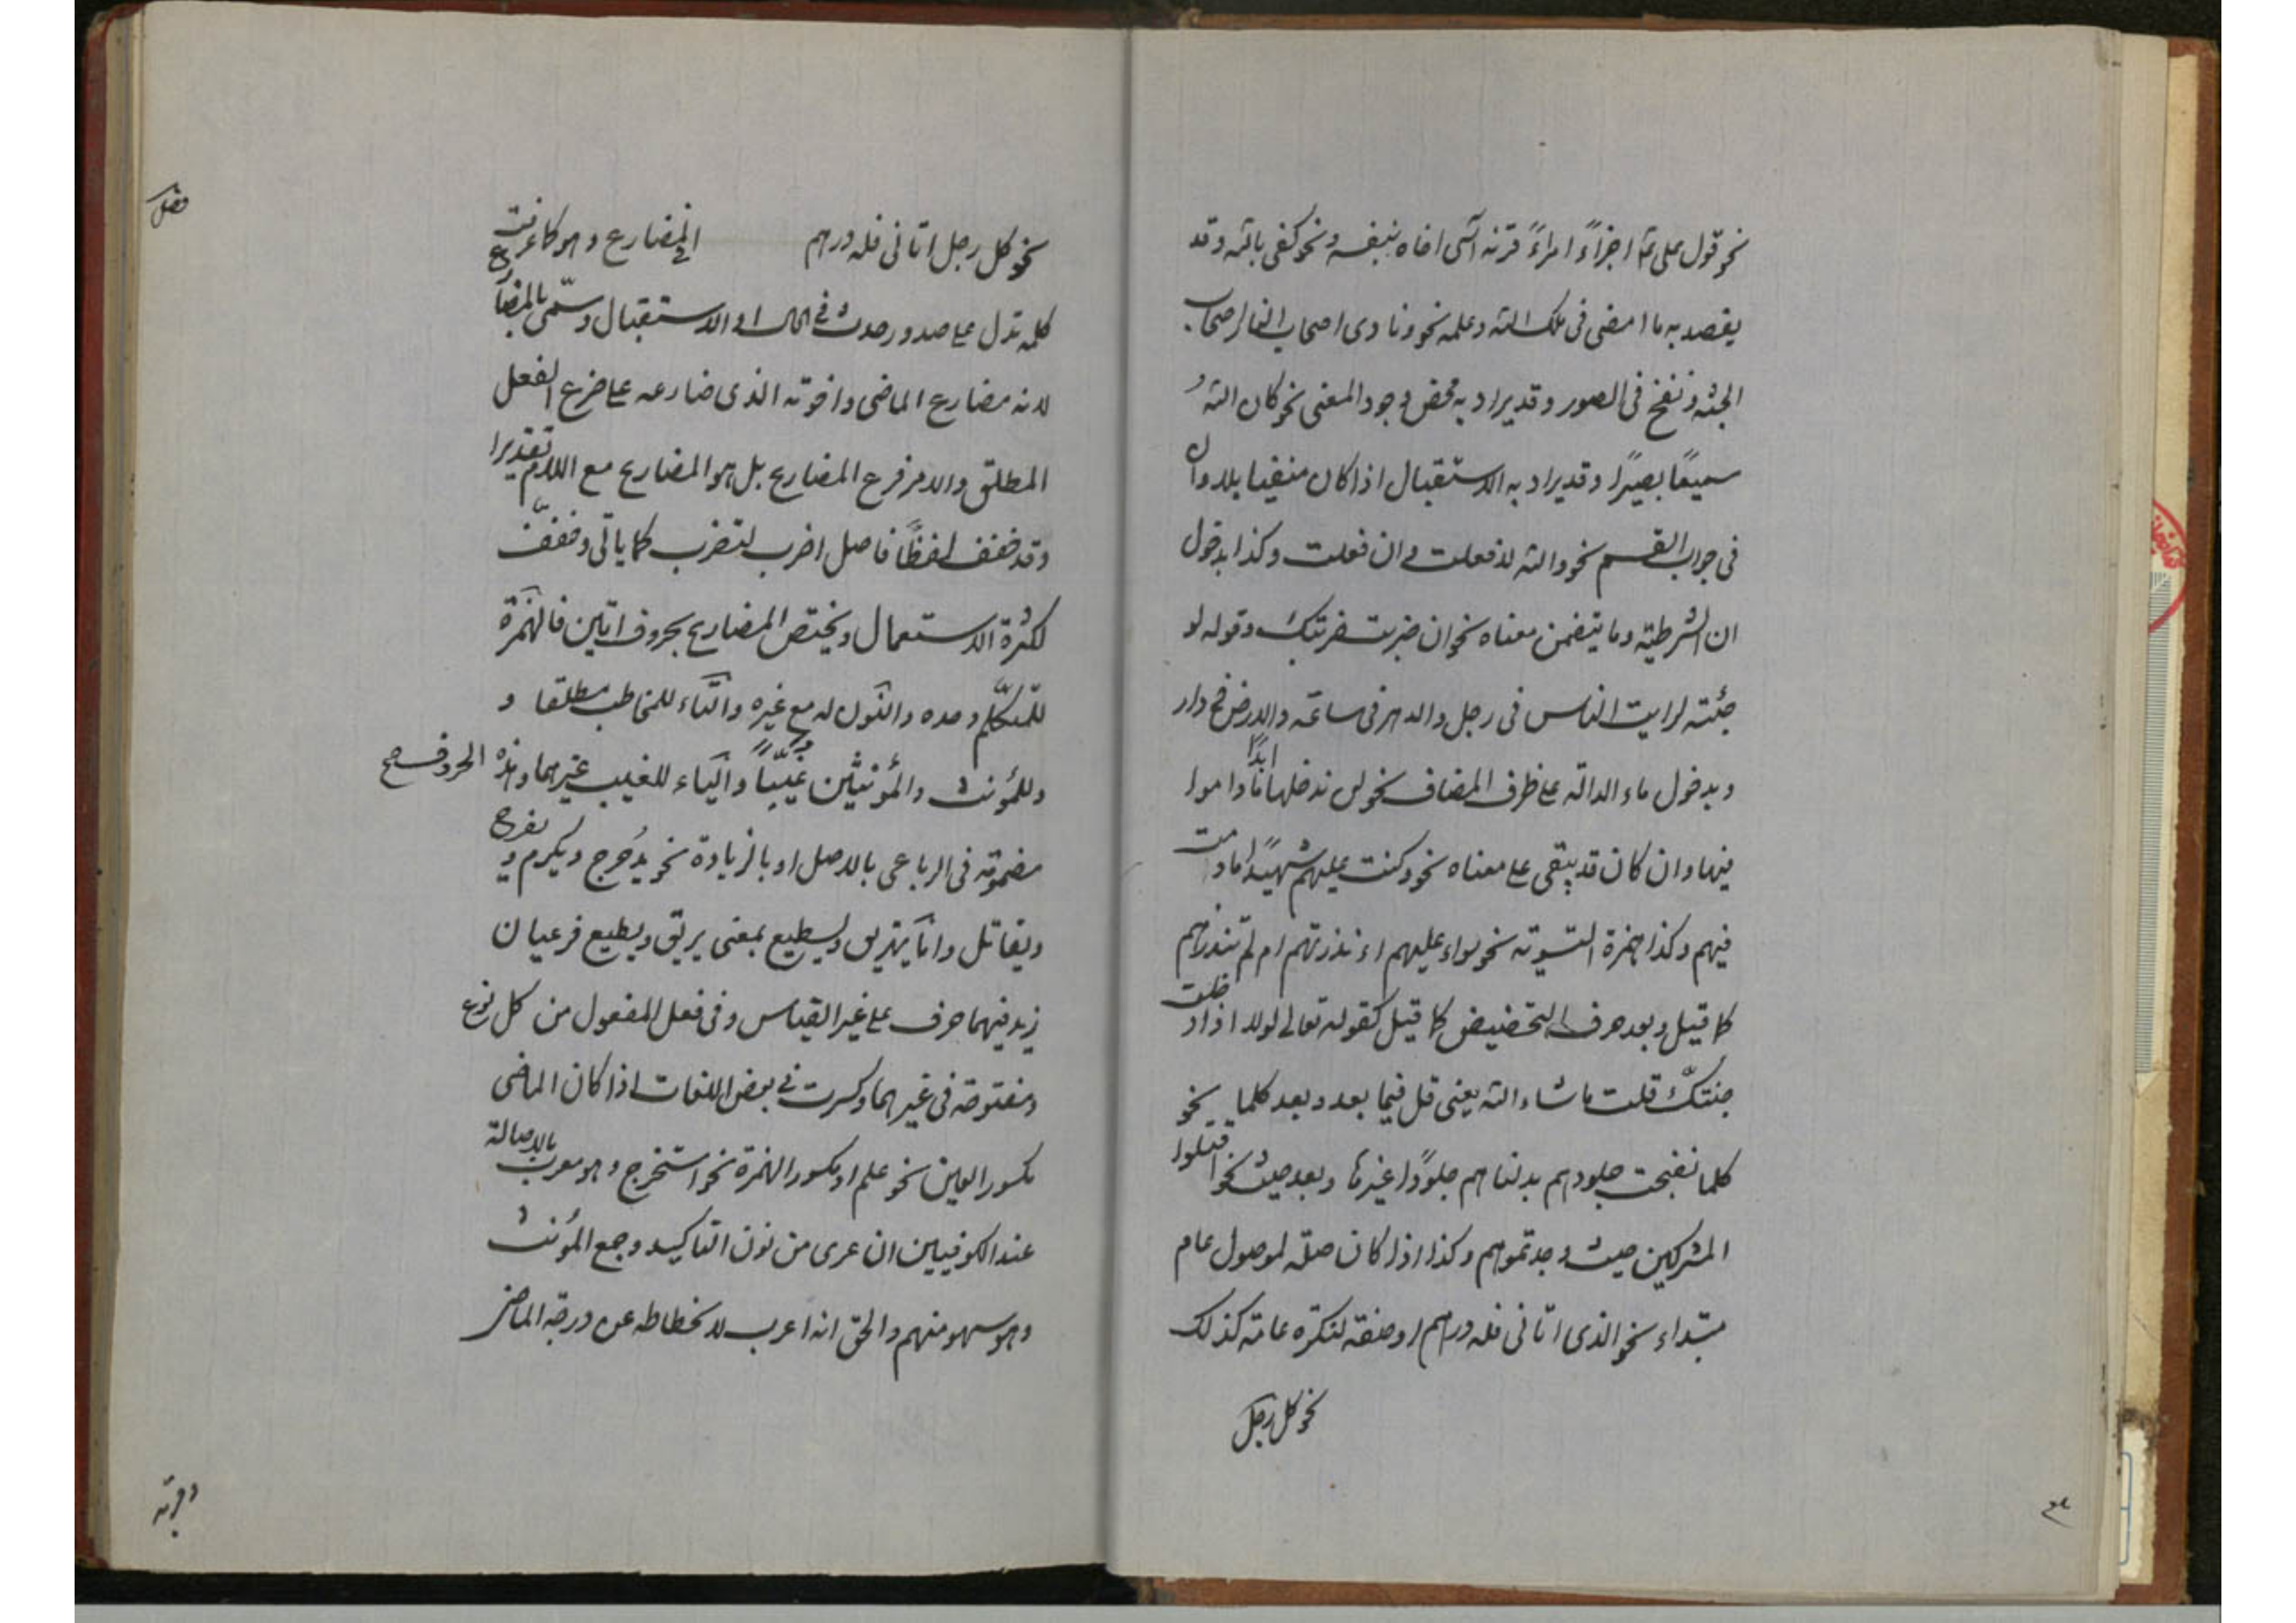 نحو قول علی ع اجزأ امرءً قرنه آسی اخاه بنفسه ونحو کفی بالله وقد
یقصد به ما امضی فی ملک الله وعلمه نحو ونادی اصحاب النار اصحاب
الجنة ونفخ فی الصور وقد یراد به محض وجود المعنی نحو کان الله
سمیعًا بصیرًا وقد یراد به الاستقبال اذا کان منفیا بلا وان
فی جواب القسم نحو والله لا فعلت وان فعلت وکذا بدخول
ان الشرطیة وما یتضمن معناه نحو ان ضربت ضربتک وقوله لو
جئته لرایت الناس فی رجل والدهر فی ساعة والارض فی دار
وبدخول ماء الدالة علی ظرف المضاف نحو لن ندخلها ابدًا ما داموا
فیها وان کان قد یبقی علی معناه نحو وکنت علیهم شهیدًا ما دمت
فیهم وکذا همزة التسویة نحو سواء علیهم ءانذرتهم ام لم تنذرهم
کما قیل وبعد حرف التحضیض کما قیل کقوله تعالی لولا اذ دخلت
جنتک قلت ما شاء الله یعنی قل فیما بعد وبعد کلما نحو
کلما نضجت جلودهم بدلناهم جلودًا غیرها وبعد حیث نحو اقتلوا
المشرکین حیث وجدتموهم وکذا اذا کان صلة لموصول عام
مبتداء نحو الذی اتانی فله دراهم او صفة لنکرة عامة کذلک
نحو کل رجل
نحو کل رجل اتانی فله درهم المضارع وهو کما عرفت
کلمة تدل علی صدور حدث فی الحال او الاستقبال وسمّی بالمضارع
لانه مضارع الماضی واخوته الذی ضارعه علی ضرع الفعل
المطلق والامر فرع المضارع بل هو المضارع مع اللام تقدیرا
وقد خفف لفظًا فاصل اضرب لتضرب کما یاتی وخفّف
لکثرة الاستعمال ویختص المضارع بحروف اتین فالهمزة
للمتکلّم وحده والنون له مع غیره والتاء للمخاطب مطلقا و
وللمؤنث والمؤنثین غیّبًا والیاء للغیب غیرهما وهذه الحروف صح
مضمومة فی الرباعی بالاصل او بالزیادة نحو یدحرج ویکرم ویفرح
ویقاتل واما یهریق ویسطیع بمعنی یریق ویطیع فرعیان
زید فیهما حرف علی غیر القیاس وفی فعل المفعول من کل نوع
ومفتوحة فی غیرهما وکسرت فی بعض اللغات اذا کان الماضی
مکسور العین نحو علم او مکسور الهمزة نحو استخرج وهو معرب بالاصالة
عند الکوفیین ان عری من نون التاکید وجمع المؤنث
وهو سهو منهم والحق انه اعرب لانحطاطه عن درجة الماضی